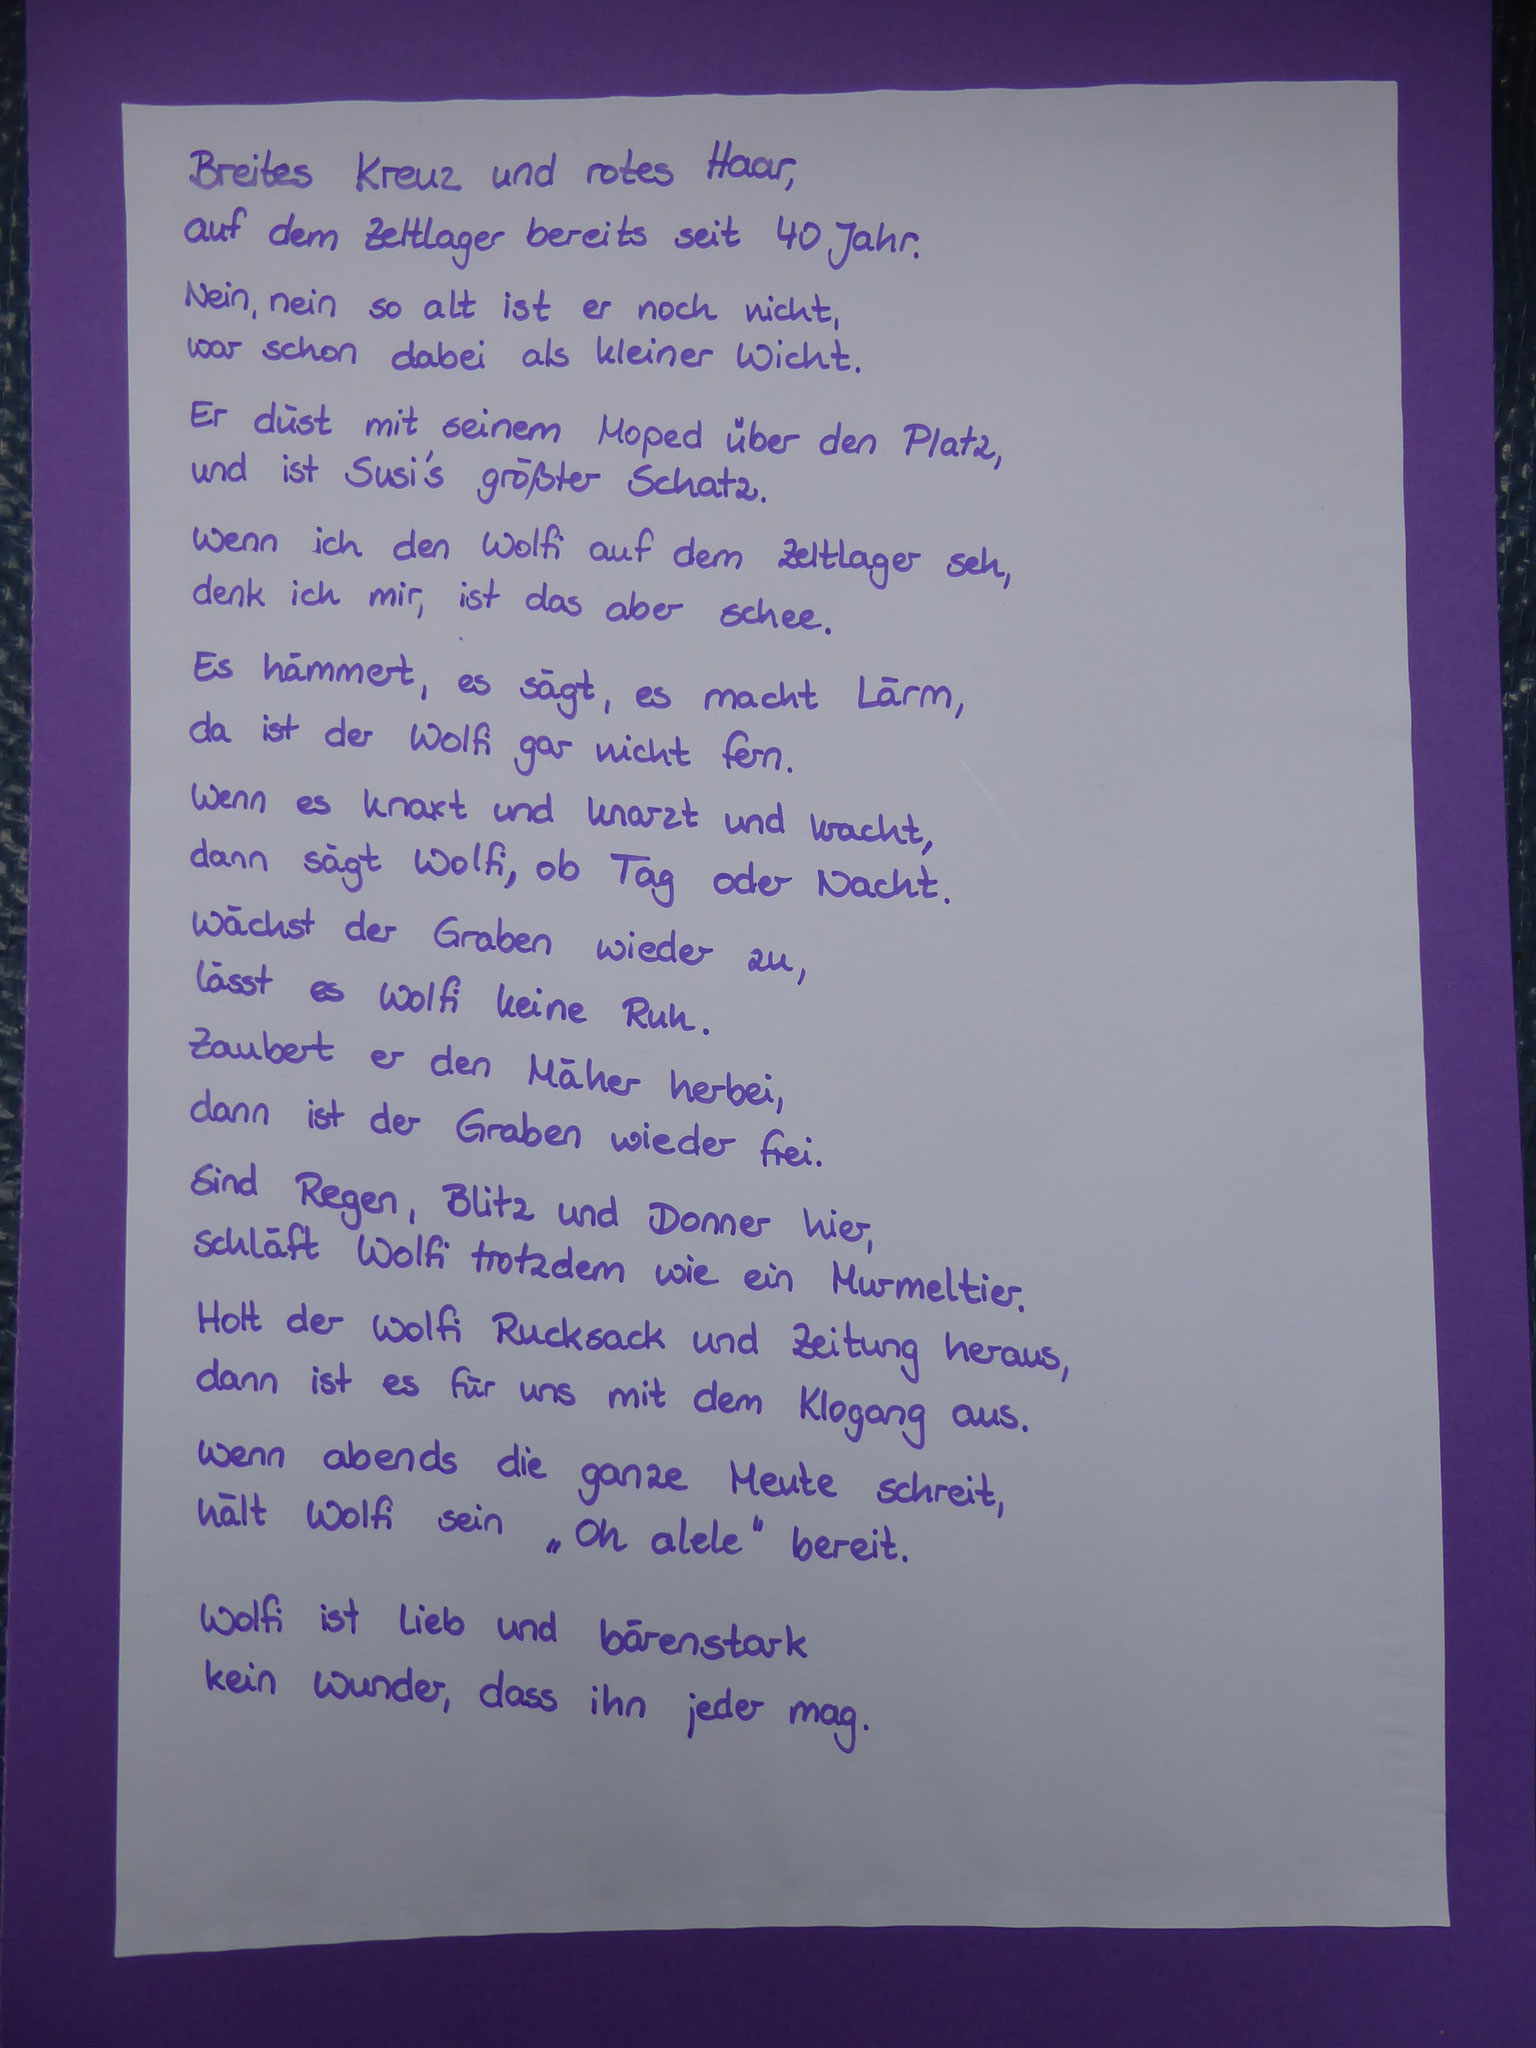 Breites Kreuz und rotes Haar,
auf dem Zeltlager bereits seit 40 Jahr.
Nein, nein so alt ist er noch nicht,
war schon dabei als kleiner Wicht.
Er düst mit seinem Moped über den Platz,
und ist Susi's größter Schatz.
Wenn ich den Wolfi auf dem Zeltlager seh,
denk ich mir, ist das aber schee.
Es hämmert, es sägt, es macht Lärm,
da ist der Wolfi gar nicht fern.
Wenn es knaxt und knarzt und kracht,
dann sägt Wolfi, ob Tag oder Nacht.
Wächst der Graben wieder zu,
lässt es Wolfi keine Ruh.
Zaubert er den Mäher herbei,
dann ist der Graben wieder frei.
Sind Regen, Blitz und Donner hier,
schläft Wolfi trotzdem wie ein Murmeltier.
Holt der Wolfi Rucksack und Zeitung heraus,
dann ist es für uns mit dem Klogang aus.
Wenn abends die ganze Meute schreit,
hält Wolfi sein „Oh alele" bereit.
Wolfi ist lieb und bärenstark
kein Wunder, dass ihn jeder mag.